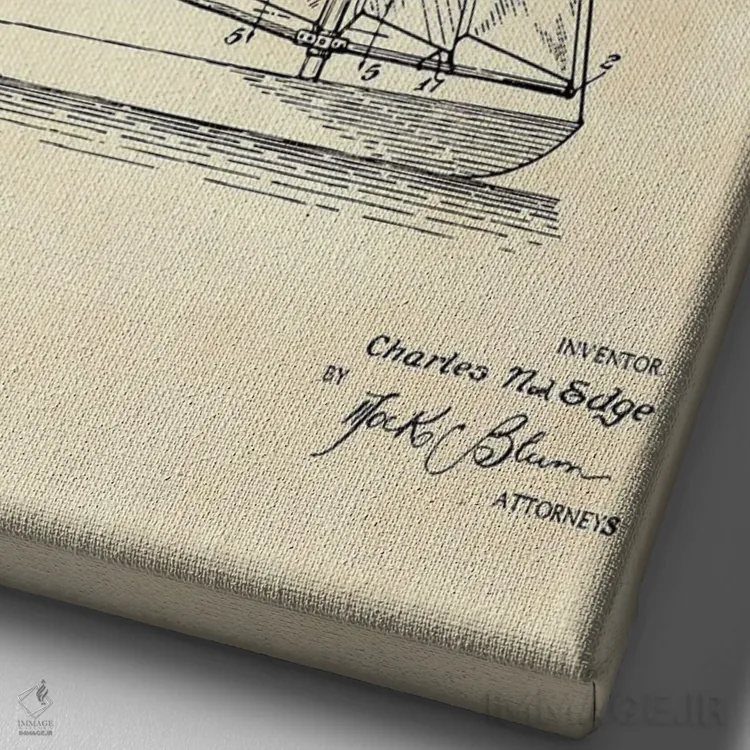 5
5
17
2
INVENTOR.
Charles Edge
BY
Jack Blum
ATTORNEYS
IMMAGE
IMMAGE.IR
IMMAGE.IR